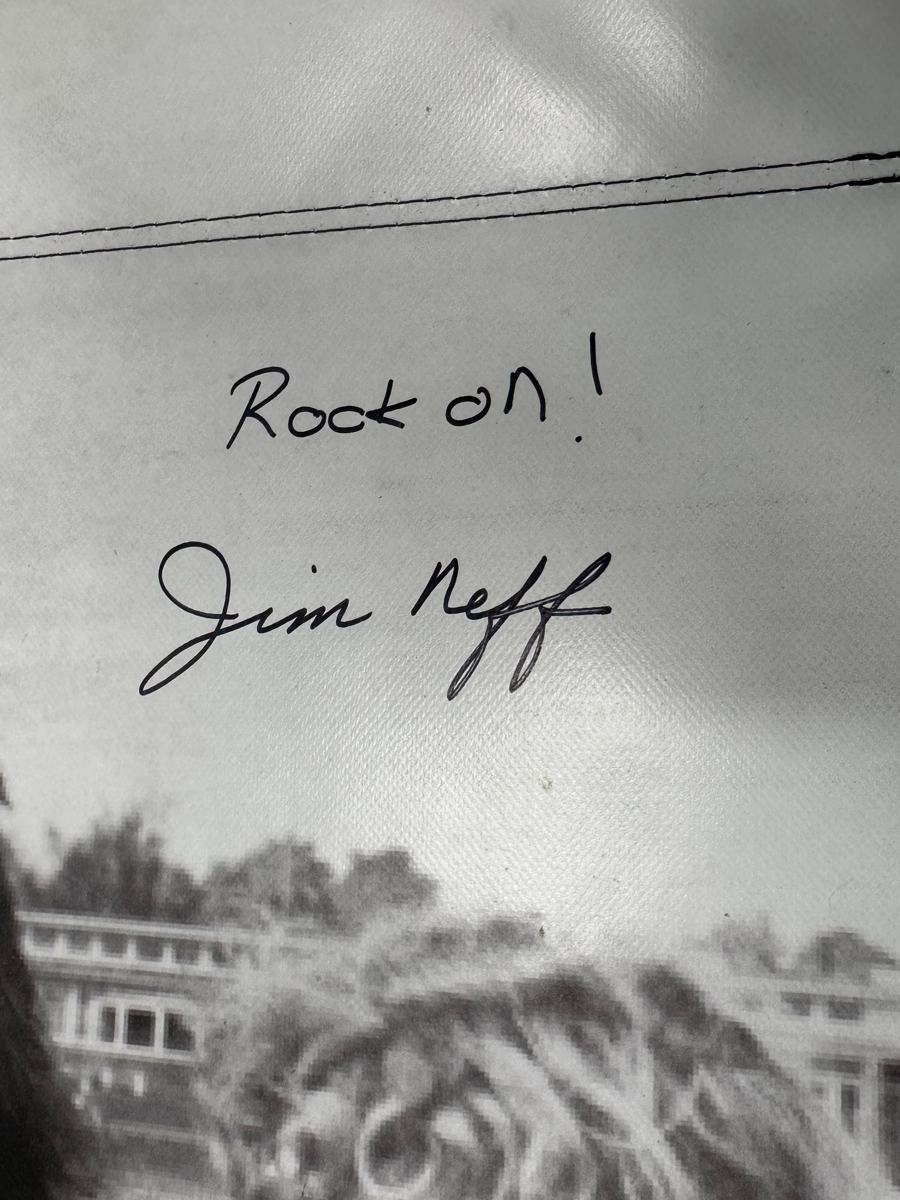 Rock on!
Jim Neff